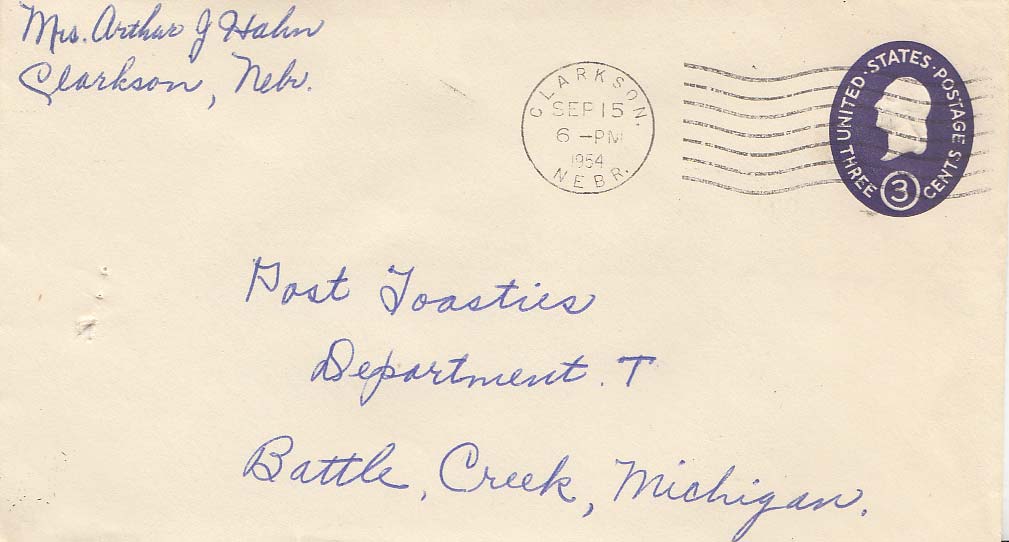 Mrs. Arthur J Hahn
Clarkson, Nebr.
CLARKSON,
SEP 15
6 -PM
1954
NEBR.
UNITED·STATES·POSTAGE
THREE 3 CENTS
Post Toasties
Department. T
Battle, Creek, Michigan.